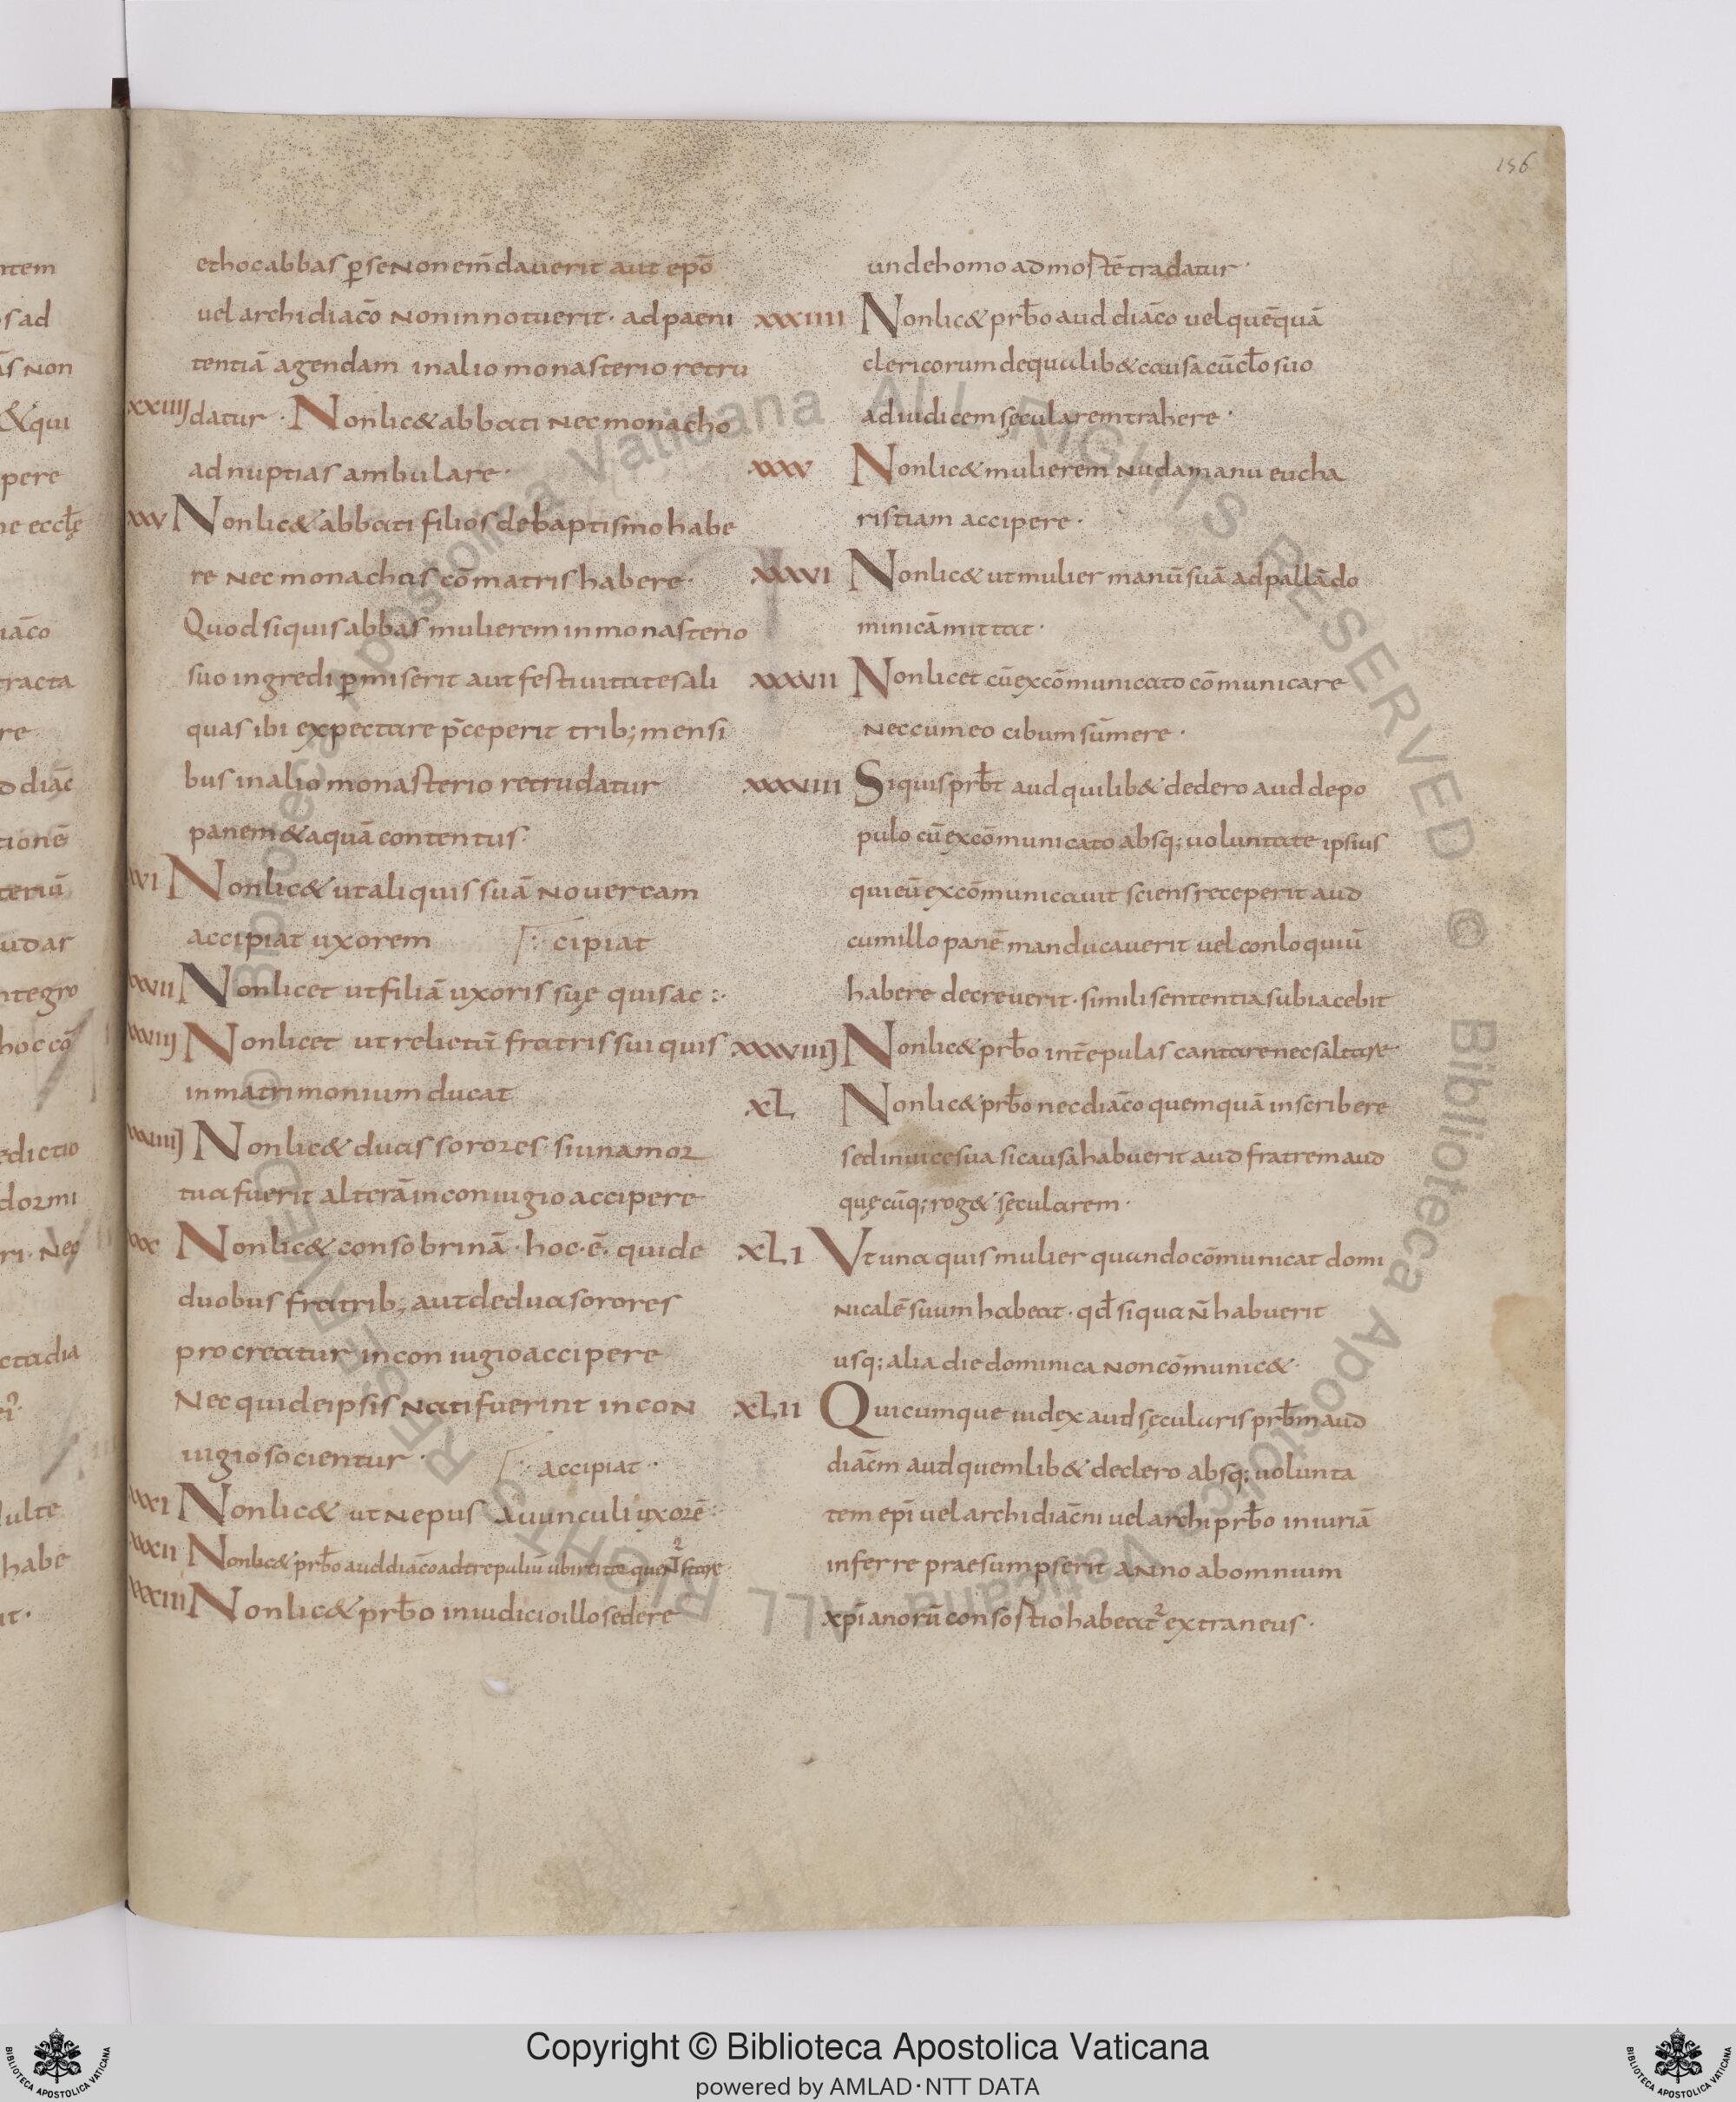 156
et hoc abbas ꝑ se non em̄dauerit aut ep̄o
uel archidiac̄o non innotuerit · ad paeni
tentiā agendam in alio monasterio retru
xxiiiȷ datur · Non lic& abbati nec monacho
ad nuptias ambulare ·
xxv Non lic& abbati filios de baptismo habe
re nec monachas cōmatris habere ·
Quod si quis abbas mulierem in monasterio
suo ingredi ꝑmiserit aut festiuitates ali
quas ibi expectare p̄ceperit trib; mensi
bus in alio monasterio retrudatur
panem & aquā contentus ·
xxvi Non lic& ut aliquis suā nouercam
accipiat uxorem cipiat
xxvii Non licet ut filiā uxoris suę quis ac :·
xxviiȷ Non licet ut relictā fratris sui quis
in matrimonium ducat
xxviiiȷ Non lic& duas sorores si una mor
tua fuerit alterā in coniugio accipere
xxx Non lic& consobrinā · hoc · ē · qui de
duobus fratrib; aut de dua sorores
procreatur in coniugio accipere
Nec qui de ipsis nati fuerint in con
iugio socientur · accipiat ··
xxxi Non lic& ut nepus auunculi uxorē ·
xxxii Non lic& prb̄o aud diac̄o ad trepaliū ubi
xxxiii Non lic& prb̄o in iudicio illo sedere
unde homo ad mostē tradatur ·
xxxiiii Non lic& prb̄o aud diāco uel quēquā
clericorum de qualib& causa cū cl̄o suo
ad iudicem sęcularem trahere ·
xxxv Non lic& mulierem nuda manu eucha
ristiam accipere ·
xxxvi Non lic& ut mulier manū suā ad pallā do
minicā mittat ·
xxxvii Non licet cū excōmunicato cōmunicare
nec cum eo cibum sūmere ·
xxxviii Si quis prb̄t aud quilib& de dero aud de po
pulo cū excōmunicato absq; uoluntate ipsius
qui eū excōmunicauit sciens receperit aud
cum illo panē manducauerit uel conloquiū
habere decreuerit · simili sententia subiacebit
xxxviiiȷ Non lic& prb̄o int̄ epulas cantare nec saltare
xL Non lic& prb̄o nec diāco quemquā inscribere
sed in uice sua si causa habuerit aud fratrem aud
quęcūq; rog& sęcularem ·
xLi Vt una quis mulier quando cōmunicat domi
nicalē suum habeat · qd̄ si qua n̄ habuerit
usq; alia die dominica non cōmunic& ·
xLii Quicumque iudex aud sęcularis prb̄m aud
diac̄m aud quemlib& de clero absq; uolunta
tem ep̄i uel archidiac̄ni uel archiprb̄o iniuriā
inferre praesumpserit anno ab omnium
xp̄ianorū consostio habeat² extraneus ·
ALL RIGHTS RESERVED © Biblioteca Apostolica Vaticana
Copyright © Biblioteca Apostolica Vaticana
powered by AMLAD·NTT DATA
BIBLIOTECA APOSTOLICA VATICANA
BIBLIOTECA APOSTOLICA VATICANA